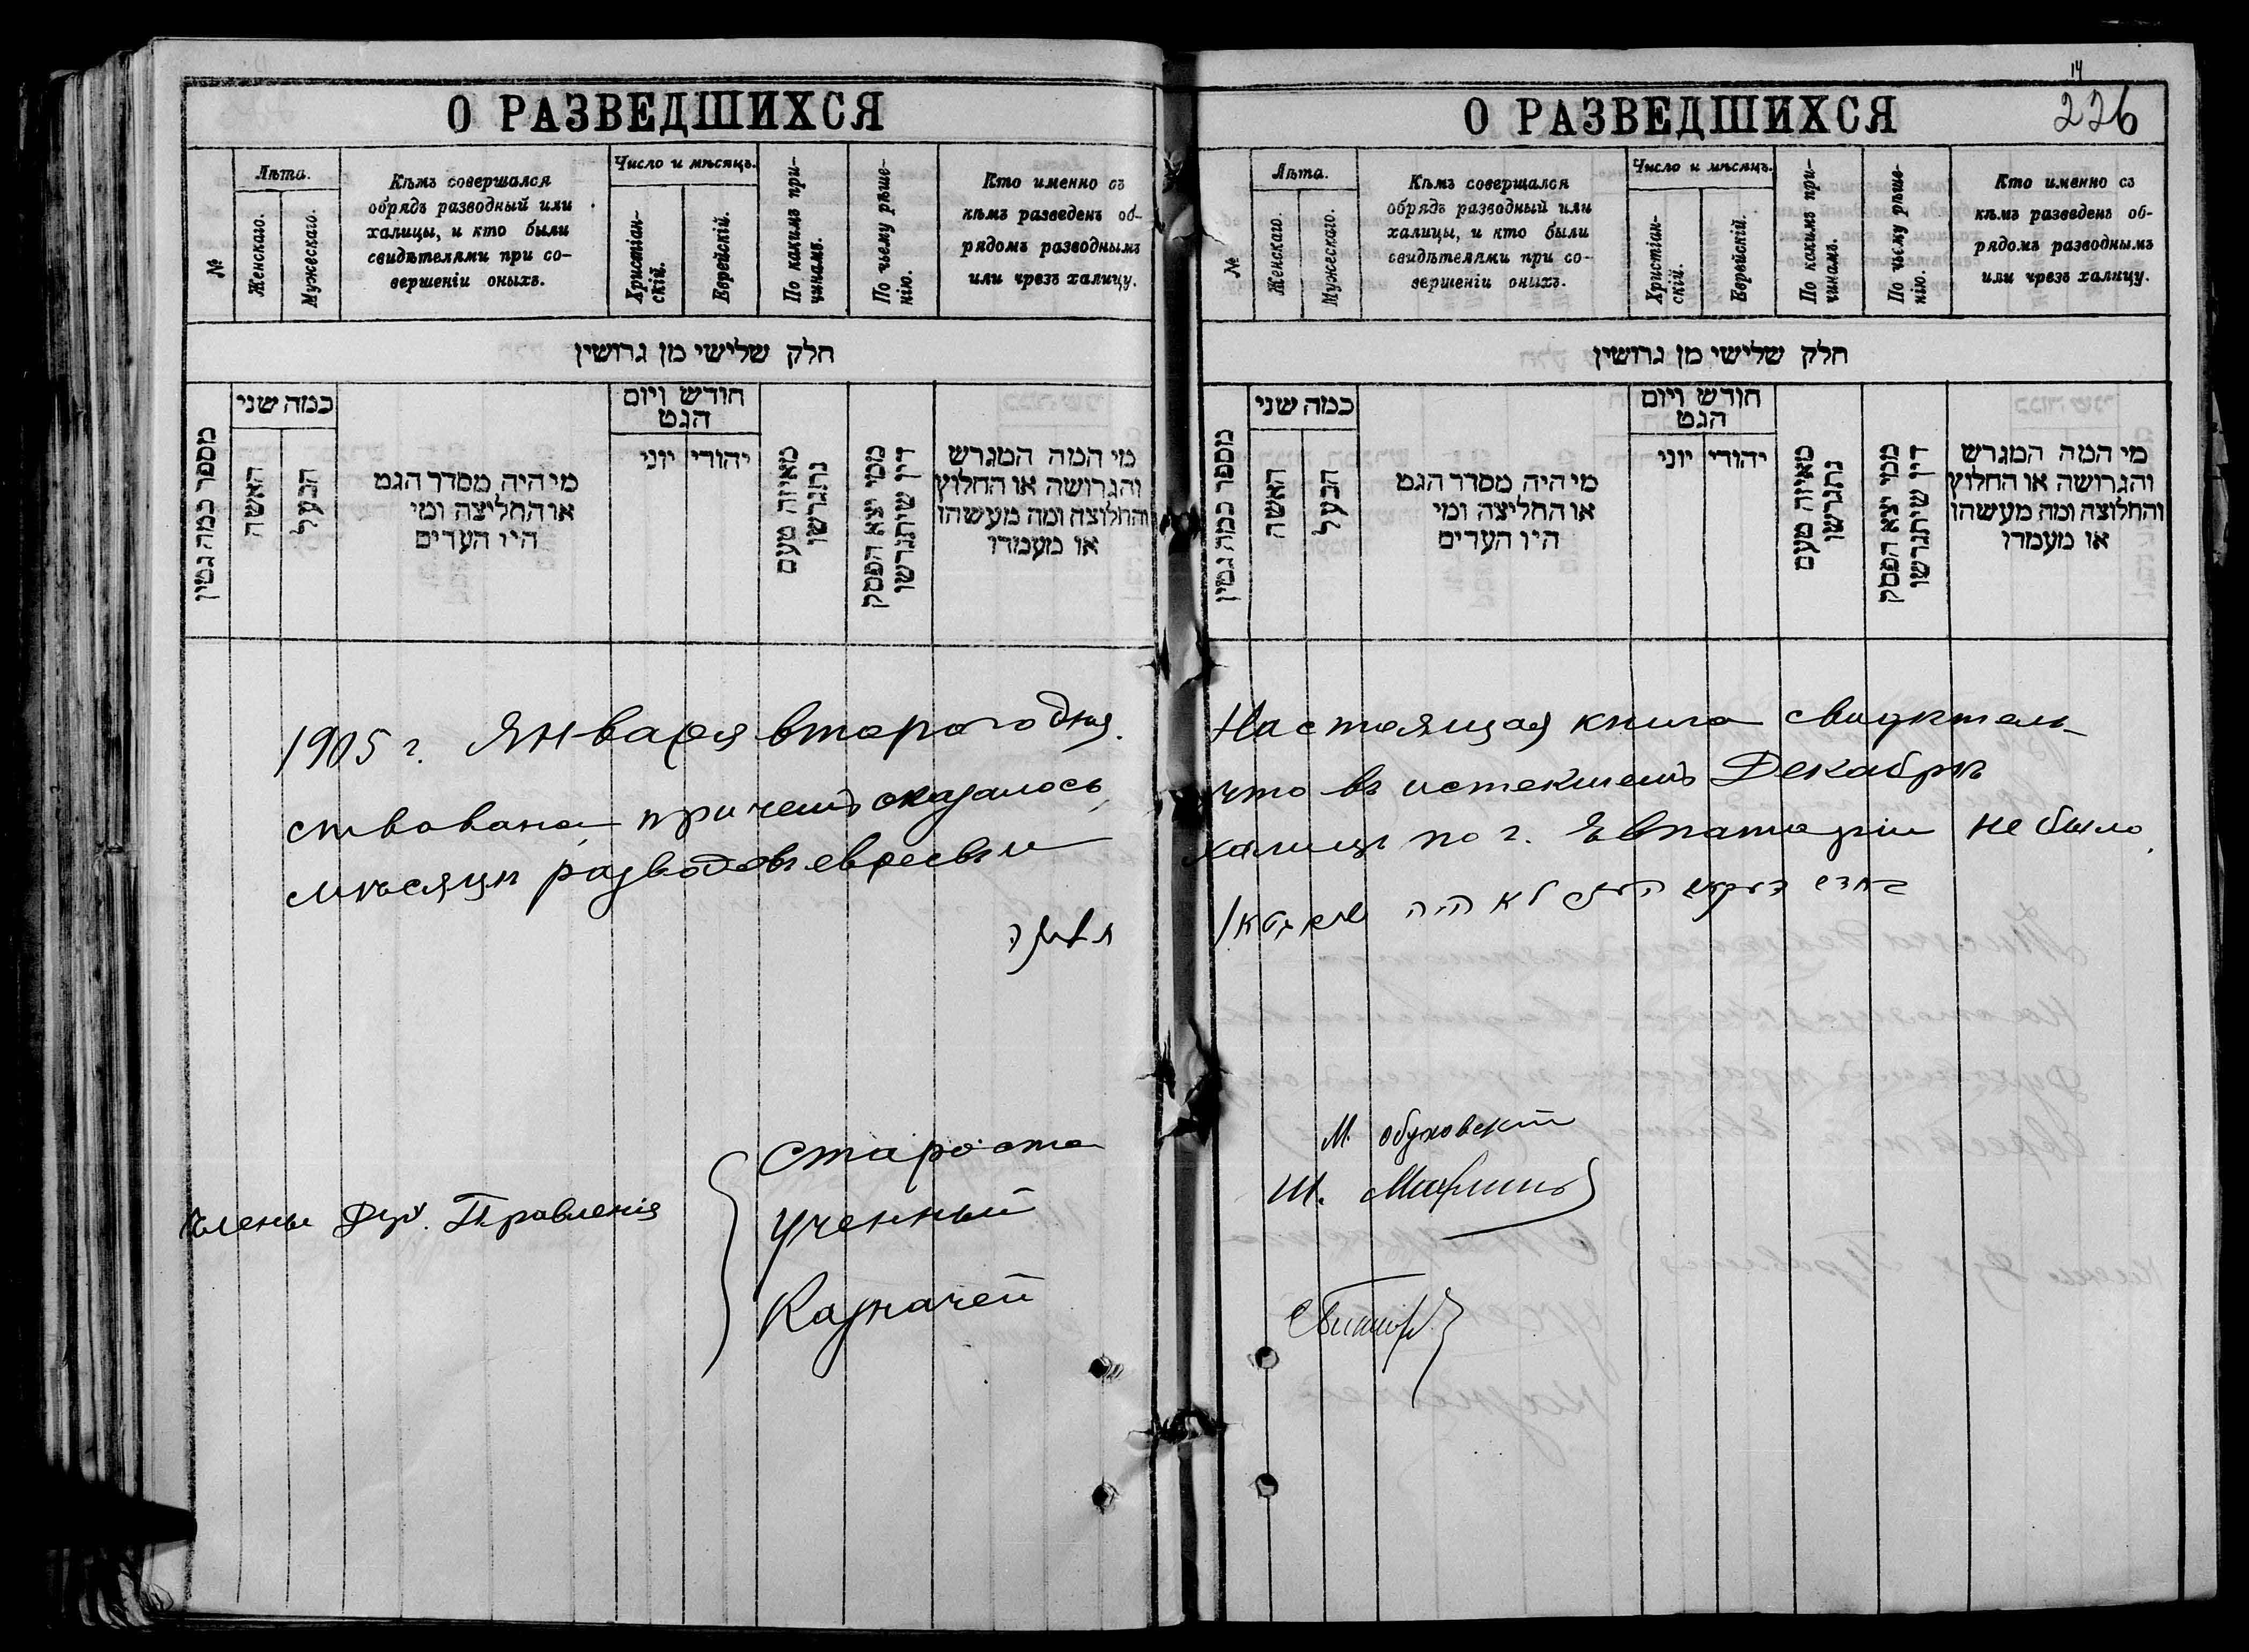 О РАЗВЕДШИХСЯ
№
Лѣта.
Женскаго.
Мужескаго.
Кѣмъ совершался
обрядъ разводный или
халицы, и кто были
свидѣтелями при со-
вершеніи оныхъ.
Число и мѣсяцъ.
Христіан-
скій.
Еврейскій.
По какимъ при-
чинамъ.
По чьему рѣше-
нію.
Кто именно съ
кѣмъ разведенъ об-
рядомъ разводнымъ
или чрезъ халицу.
חלק שלישי מן גרושין
מספר כמה גטין
כמה שני
האשה
הבעל
מי היה מסדר הגט
או החליצה ומי
היו העדים
חודש ויום
הגט
יהודי
יוני
מאיזה טעם
נתגרשו
ממי יצא הפסק
דין שיתגרשו
מי המה המגרש
והגרושה או החלוץ
והחלוצה ומה מעשהו
או מעמדו
14
226
О РАЗВЕДШИХСЯ
№
Лѣта.
Женскаго.
Мужескаго.
Кѣмъ совершался
обрядъ разводный или
халицы, и кто были
свидѣтелями при со-
вершеніи оныхъ.
Число и мѣсяцъ.
Христіан-
скій.
Еврейскій.
По какимъ при-
чинамъ.
По чьему рѣше-
нію.
Кто именно съ
кѣмъ разведенъ об-
рядомъ разводнымъ
или чрезъ халицу.
חלק שלישי מן גרושין
מספר כמה גטין
כמה שני
האשה
הבעל
מי היה מסדר הגט
או החליצה ומי
היו העדים
חודש ויום
הגט
יהודי
יוני
מאיזה טעם
נתגרשו
ממי יצא הפסק
דין שיתגרשו
מי המה המגרש
והגרושה או החלוץ
והחלוצה ומה מעשהו
או מעמדו
1905 г. Января второго дня. Настоящая книга свидѣтель-
ствована, при чемъ оказалось, что въ истекшемъ Декабрѣ
мѣсяцѣ разводовъ евреевъ и халицъ по г. Евпаторіи не было.
לא היה
Члены Дух. Правленія
Староста М. Обуховскій
Ученый Ш.
Казначей